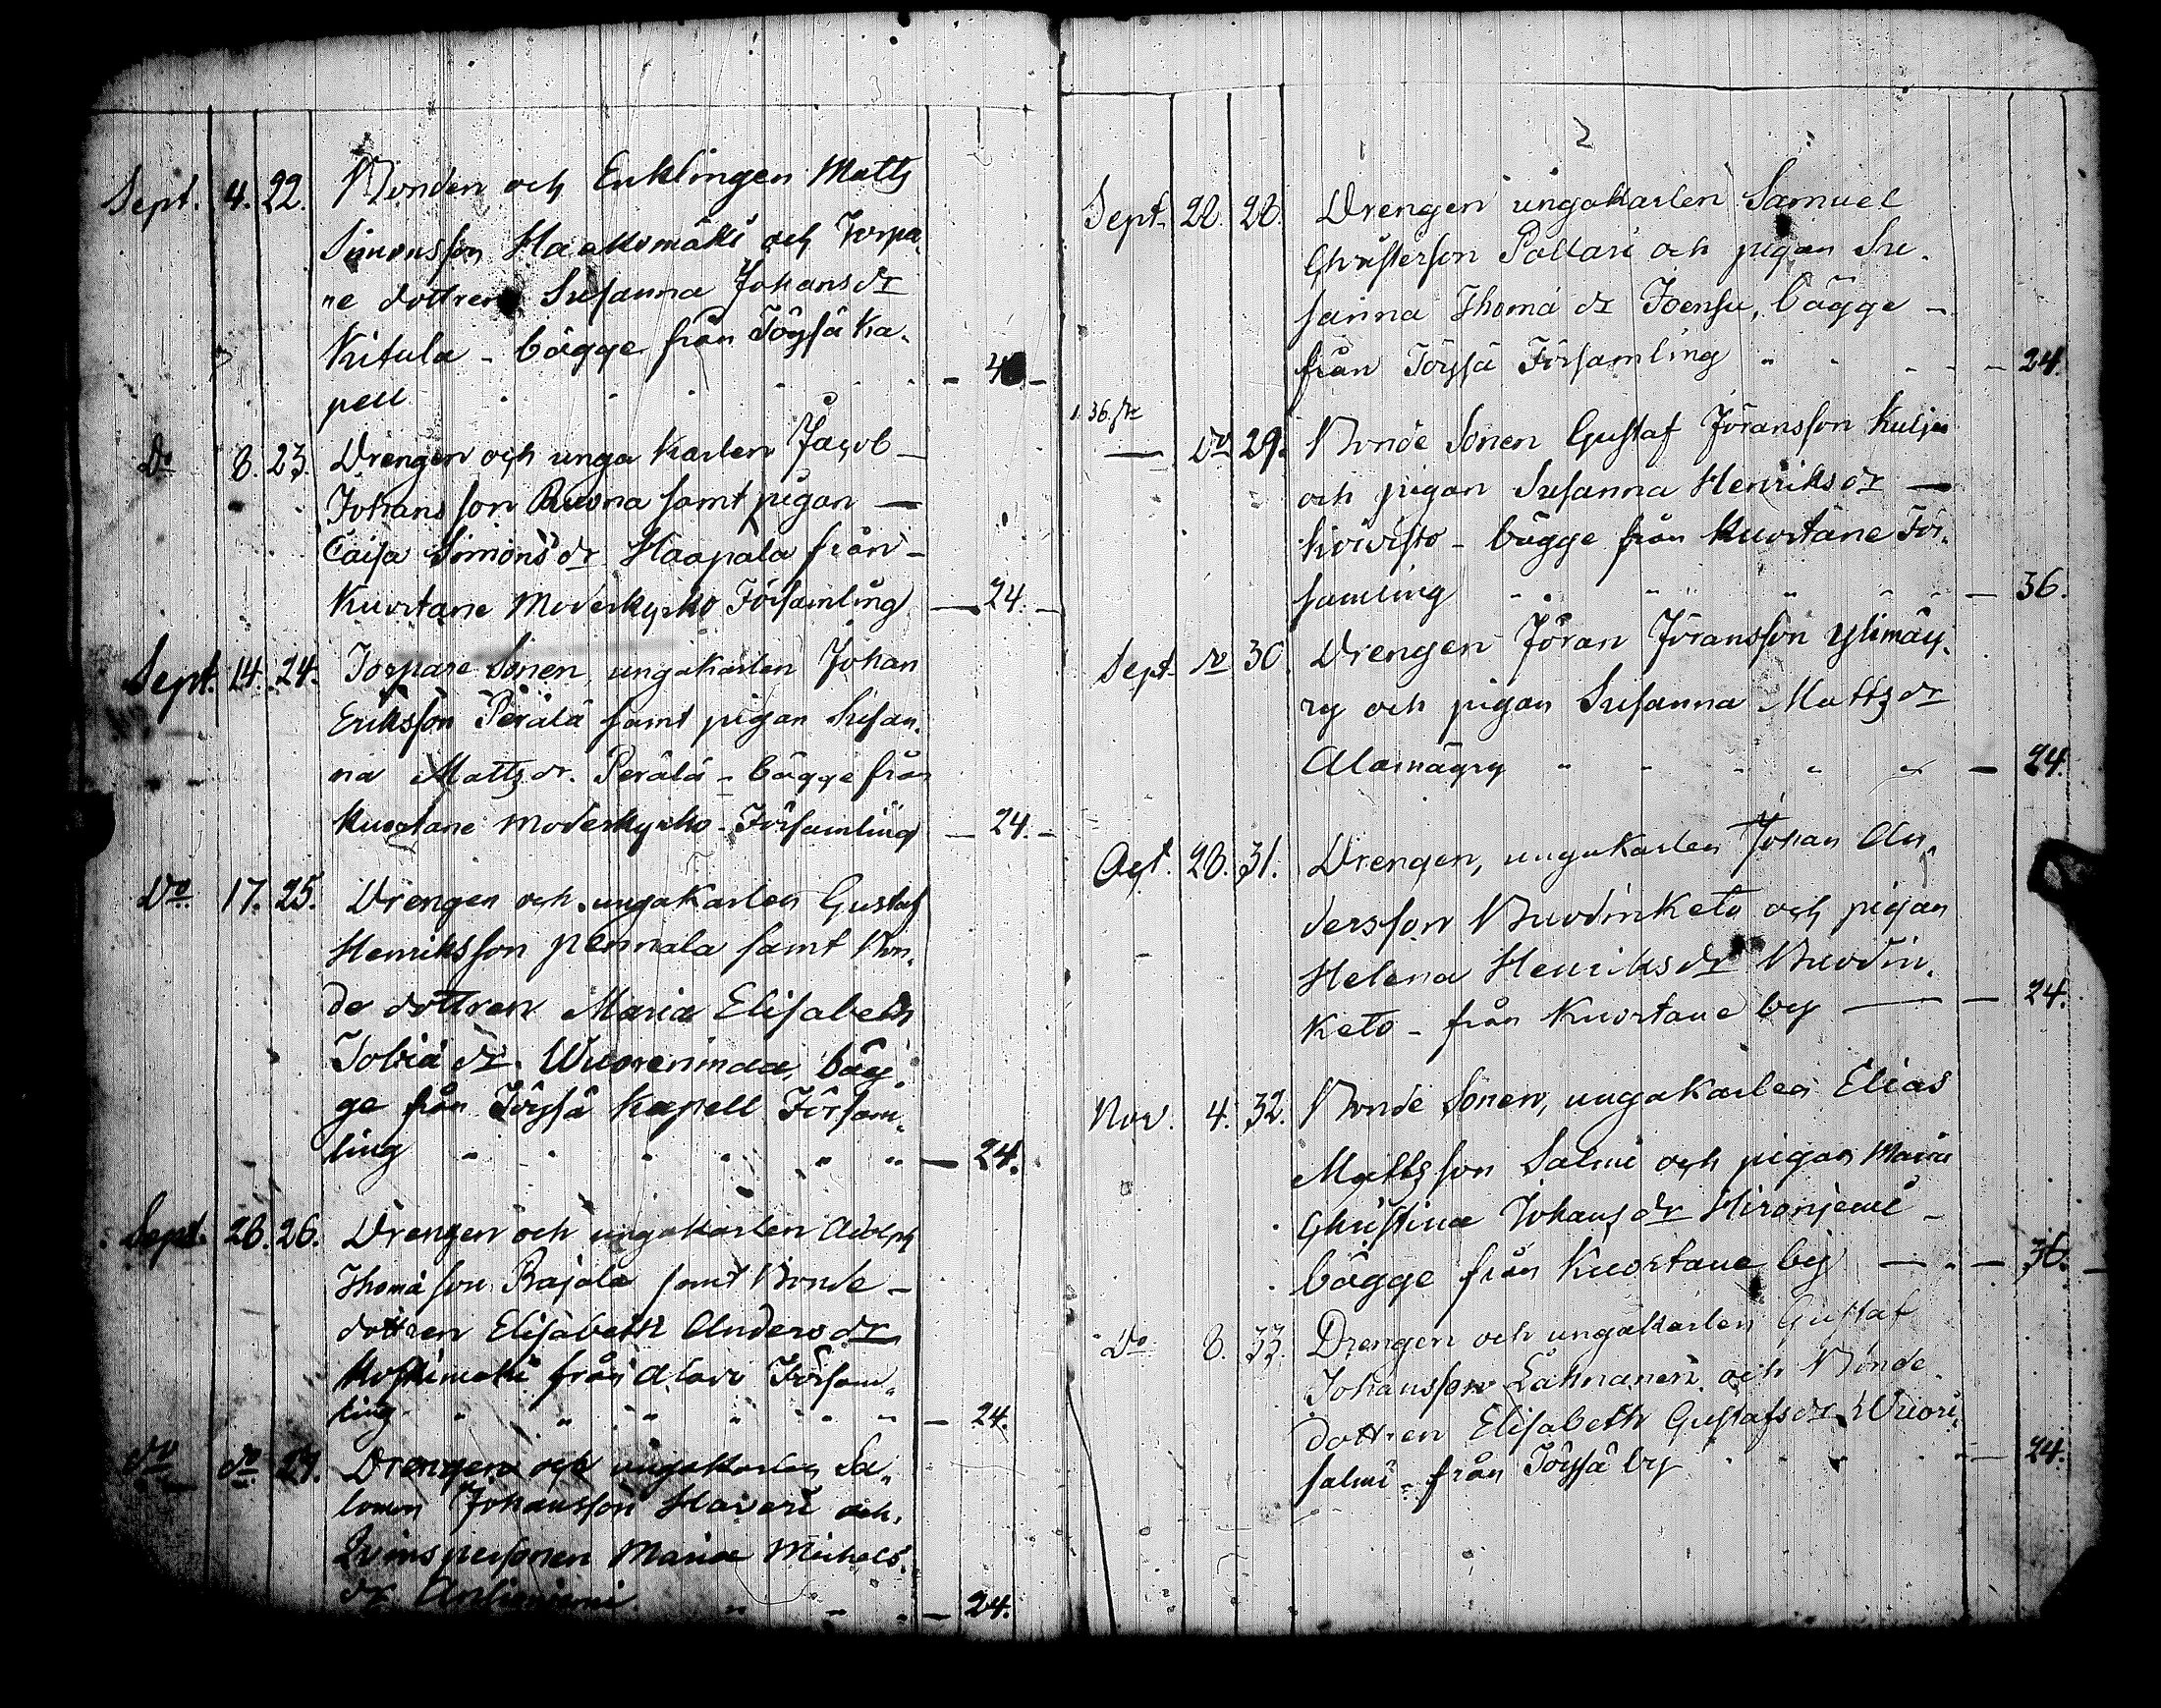 Sept. 4. 22. Bonden och Enklingen Matts
Simonsson Haakomäki och Torpa-
re dottren Susanna Johansdr
Kitula - bägge från Töysä Ka-
pell - 4
Do 8. 23. Drengen och unga Karlen Jacob -
Johansson Ruona samt pigan -
Caisa Simonsdr Haapala från -
Kuortane Moderkyrko Församling - 24. -
Sept. 14. 24. Torpare Sonen, ungakarlen Johan
Eriksson Perälä samt pigan Susan-
na Mattsdr. Perälä - bägge från
Kuortane Moderkyrko-Församling - 24. -
Do 17. 25. Drengen och ungakarlen Gustaf
Henriksson Pennala samt Bon-
de dottren Maria Elisabeth
Tobiä dr. Wuorenmaa, bäg-
ge från Töysä Kapell Försam-
ling " " " " " " - 24.
Sept. 28. 26. Drengen och ungakarlen Adolph
Thomä son Rajala samt Bonde -
dottren Elisabeth Andersdr
Koskimäki från Alavo Försam-
ling " " " " " " - 24.
do do 27. Drengen och ungakarlen Sa-
lomon Johansson Haveri och
Qvinspersonen Maria Michels-
dr " - 24.
2
Sept. 28. 28. Drengen ungakarlen Samuel
Christerson Pollari och pigan Su-
sanna Thomä dr Joensu, bägge -
från Töysä Församling " - 24.
1. 36.
— do 29. Bonde Sonen Gustaf Jöransson Kulju
och pigan Susanna Henriksdr —
Koivisto - bägge från Kuortane För-
samling " " " " - 36.
Sept. do 30. Drengen Jöran Jöransson Ylimäy-
ry och pigan Susanna Mattsdr
Alamäyry " " " " " - 24.
Oct. 28. 31. Drengen, ungakarlen Johan An-
dersson Ruodinketo och pigan
Helena Henriksdr Ruodin-
keto - från Kuortane by — - 24.
Nov. 4. 32. Bonde Sonen, ungakarlen Elias
Mattsson Salmi och pigan Maria
Christina Johansdr Hironjemi -
bägge från Kuortane by — - 36. -
Do 8. 33. Drengen och ungakarlen Gustaf
Johansson Lahnanen och Bonde
dottren Elisabeth Gustafsdr Wuori-
salmi - från Töysä by - 24.